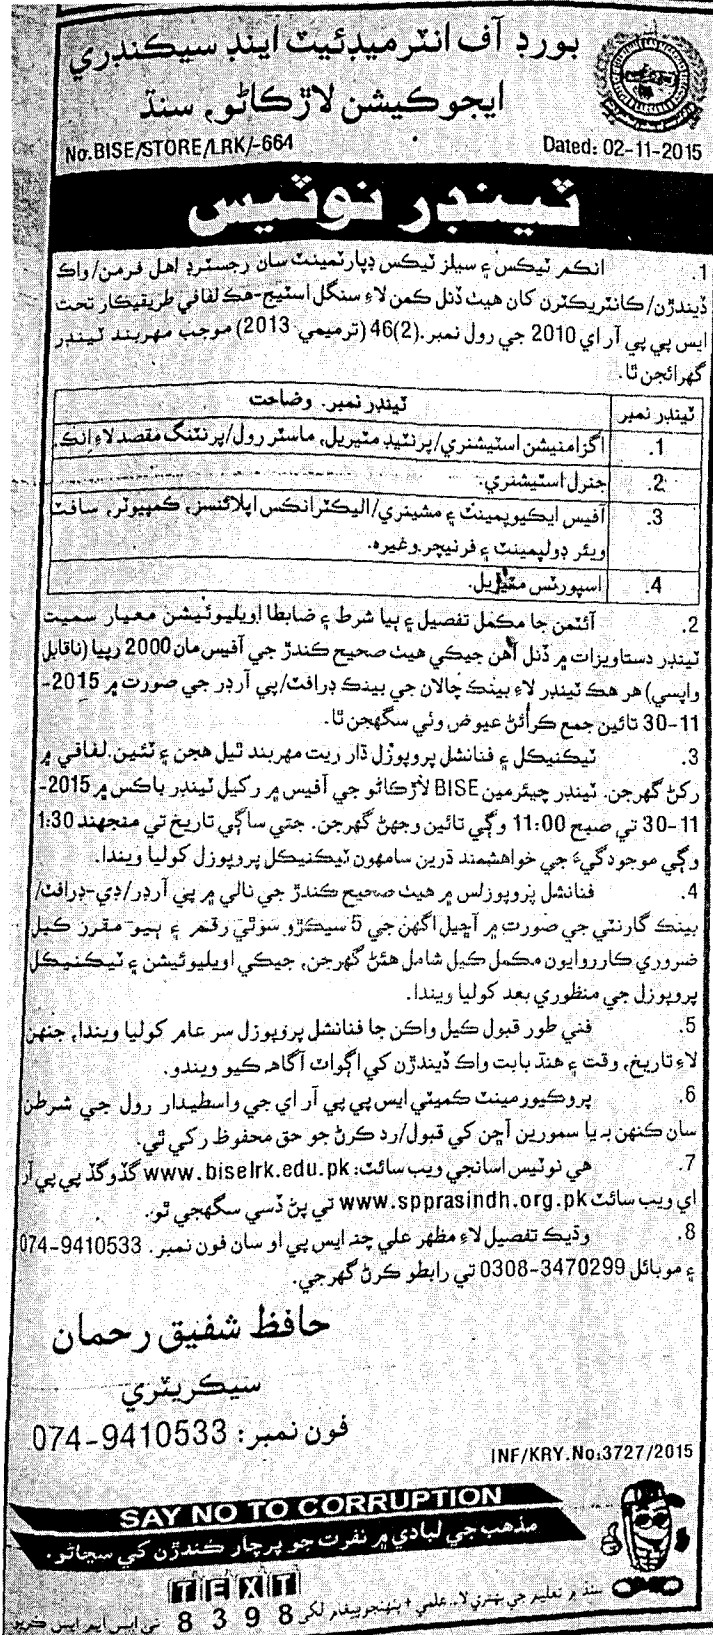 بورڊ آف انٽرميڊئيٽ اينڊ سيڪنڊري
ايجوڪيشن لاڙڪاڻو، سنڌ
No.BISE/STORE/LRK/-664 Dated: 02-11-2015
ٽينڊر نوٽيس
1. انڪم ٽيڪس ۽ سيلز ٽيڪس ڊپارٽمينٽ سان رجسٽرڊ اهل فرمن/واڪ
ڏيندڙن/ڪانٽريڪٽرن کان هيٺ ڏنل ڪمن لاءِ سنگل اسٽيج-هڪ لفافي طريقيڪار تحت
ايس پي پي آر اي 2010 جي رول نمبر.(2)46 (ترميمي 2013) موجب مهربند ٽينڊر
گهرائجن ٿا.
ٽينڊر نمبر ٽينڊر نمبر. وضاحت
1. اگزامنيشن اسٽيشنري/پرنٽيڊ مٽيريل، ماسٽر رول/پرنٽنگ مقصد لاءِ انڪ.
2. جنرل اسٽيشنري.
3. آفيس ايڪيوپمينٽ ۽ مشينري/اليڪٽرانڪس اپلائنسز، ڪمپيوٽر، سافٽ
ويئر ڊولپمينٽ ۽ فرنيچر وغيره.
4. اسپورٽس مٽيريل.
2. آئٽمن جا مڪمل تفصيل ۽ ٻيا شرط ۽ ضابطا اويليوئيشن معيار سميت
ٽينڊر دستاويزات ۾ ڏنل آهن جيڪي هيٺ صحيح ڪندڙ جي آفيس مان 2000 رپيا (ناقابل
واپسي) هر هڪ ٽينڊر لاءِ بينڪ چالان جي بينڪ ڊرافٽ/پي آرڊر جي صورت ۾ 2015-
11-30 تائين جمع ڪرائڻ عيوض وٺي سگهجن ٿا.
3. ٽيڪنيڪل ۽ فنانشل پروپوزل ڌار ريت مهربند ٿيل هجن ۽ ٽئين لفافي ۾
رکڻ گهرجن. ٽينڊر چيئرمين BISE لاڙڪاڻو جي آفيس ۾ رکيل ٽينڊر باڪس ۾ 2015-
11-30 تي صبح 11:00 وڳي تائين وجهڻ گهرجن. جتي ساڳي تاريخ تي منجهند 1:30
وڳي موجودگيءَ جي خواهشمند ڌرين سامهون ٽيڪنيڪل پروپوزل کوليا ويندا.
4. فنانشل پروپوزلس ۾ هيٺ صحيح ڪندڙ جي نالي ۾ پي آرڊر/ڊي-ڊرافٽ/
بينڪ گارنٽي جي صورت ۾ آڇيل اگهن جي 5 سيڪڙو سوٿي رقم ۽ ٻيو مقرر ڪيل
ضروري ڪارروايون مڪمل ڪيل شامل هئڻ گهرجن، جيڪي اويليوئيشن ۽ ٽيڪنيڪل
پروپوزل جي منظوري بعد کوليا ويندا.
5. فني طور قبول ڪيل واڪن جا فنانشل پروپوزل سر عام کوليا ويندا، جنهن
لاءِ تاريخ، وقت ۽ هنڌ بابت واڪ ڏيندڙن کي اڳواٽ آگاهه ڪيو ويندو.
6. پروڪيورمينٽ ڪميٽي ايس پي پي آر اي جي واسطيدار رول جي شرطن
سان ڪنهن به يا سمورين آڇن کي قبول/رد ڪرڻ جو حق محفوظ رکي ٿي.
7. هي نوٽيس اسانجي ويب سائٽ: www.biselrk.edu.pk گڏوگڏ پي پي آر
اي ويب سائٽ www.spprasindh.org.pk تي پڻ ڏسي سگهجي ٿو.
8. وڌيڪ تفصيل لاءِ مظهر علي چنه ايس پي او سان فون نمبر. 074-9410533
۽ موبائل 0308-3470299 تي رابطو ڪرڻ گهرجي.
حافظ شفيق رحمان
سيڪريٽري
فون نمبر: 074-9410533
INF/KRY.No:3727/2015
SAY NO TO CORRUPTION
مذهب جي لبادي ۾ نفرت جو پرچار ڪندڙن کي سڃاڻو.
TEXT
سنڌ ۾ تعليم جي بهتري لاءِ علمي + پنهنجو پيغام لکي 8398 تي ايس ايم ايس ڪريو